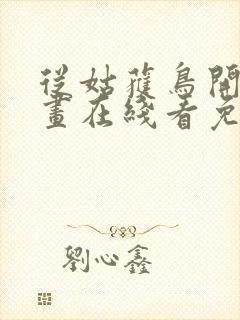 從姑獲鳥開
畫在綫看免
劉心鑫